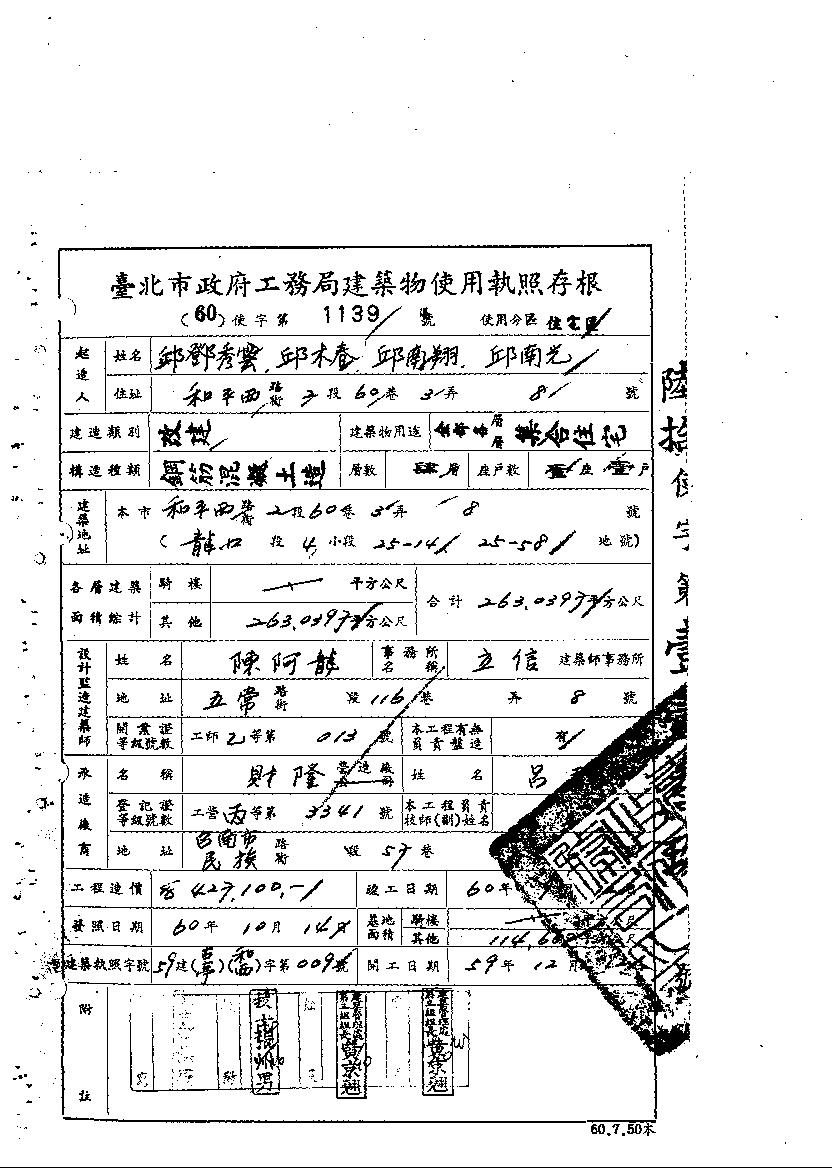 臺北市政府工務局建築物使用執照存根
(60) 使字第 1139 號 使用分區 住宅區
起造人 姓名 邱鄧秀雲、邱木春、邱南翔、邱南光
住址 和平西 路街 2段 60巷 3弄 8 號
建造類別 改建 建築物用途 全部各層 集合住宅
構造種類 鋼筋混凝土造 層數 肆層 座戶數 壹座壹戶
建築地址 本市 和平西 路街 2段 60巷 3弄 8 號
( 龍口 段 4 小段 25-14 25-58 地號)
各層建築面積綜計 騎樓 平方公尺 合計 263.0397 平方公尺
其他 263.0397 平方公尺
設計監造建築師 姓名 陳阿龍 事務所名稱 立信 建築師事務所
地址 五常 路街 段 116 巷 弄 8 號
開業證等級號數 工師 乙 等第 013 號 本工程有無負責監造 有
承造廠商 名稱 財隆 營造廠 姓名 呂
登記證等級號數 工營 丙 等第 3341 號 本工程負責技師(副)姓名
地址 台南市民族 路街 段 57 巷
工程造價 427,100.- 竣工日期 60年
發照日期 60年 10月 14 基地面積 騎樓 公尺
其他 114.6
建築執照字號 59建( )( )字第 009 號 開工日期 59年 12月
附註
60.7.50本
陸拾使字第壹